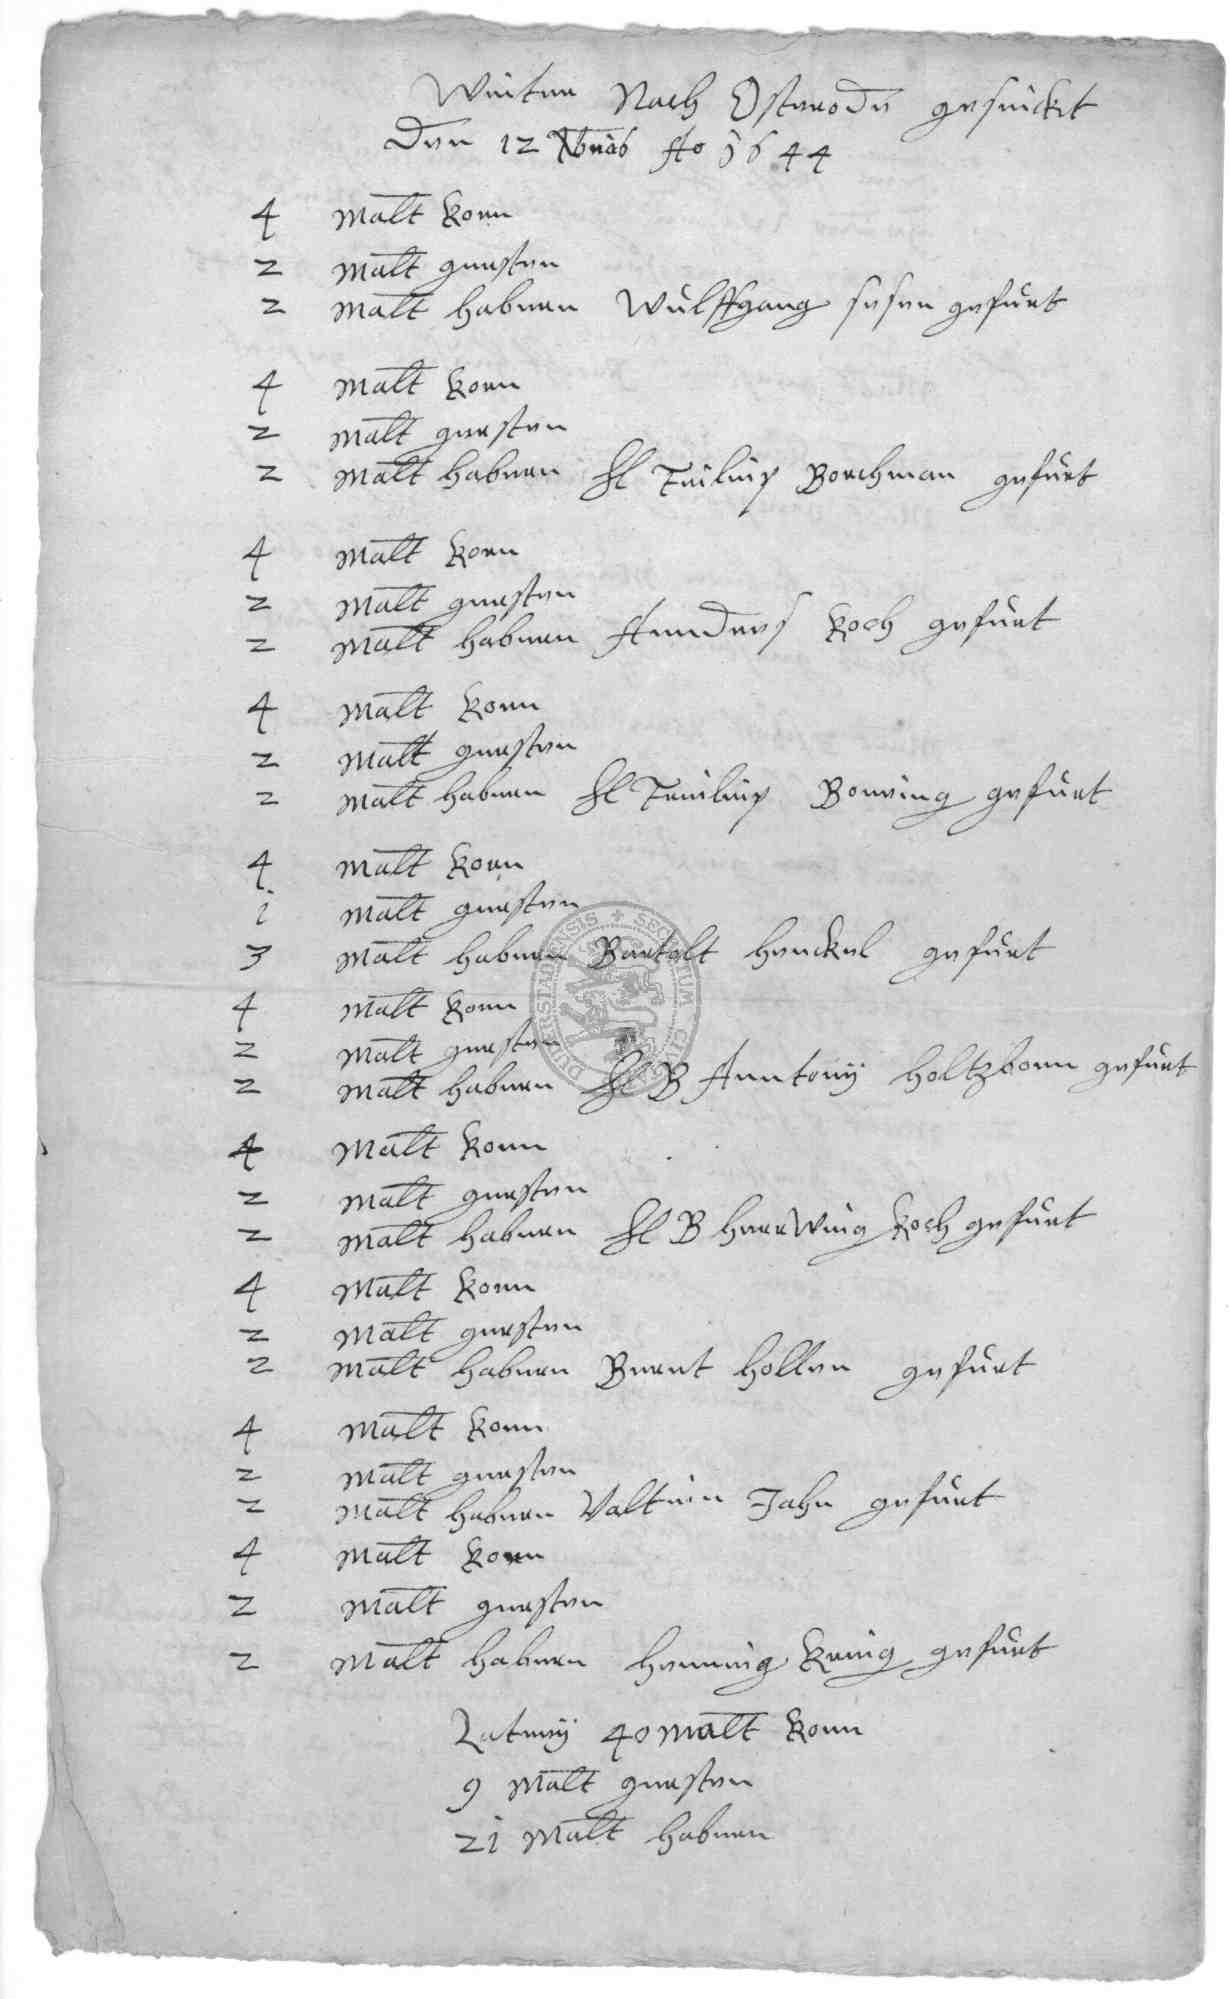 Weiter Nach Osterode geschickt
Den 12 Xbris Ao 1644
4 Malt Korn
2 Malt gersten
2 Malt habern Wulffgang sesen gefurt
4 Malt Korn
2 Malt gersten
2 Malt habern H Borchman gefürt
4 Malt Korn
2 Malt gersten
2 Malt habern Anndres Koch gefürt
4 Malt Korn
2 Malt gersten
2 Malt habern H Boning gefürt
4 Malt Korn
i Malt gersten
3 Malt habern Bartolt henckel gefürt
4 Malt Korn
2 Malt gersten
2 Malt habern H B Anntonij holtzborn gefürt
4 Malt Korn
2 Malt gersten
2 Malt habern H B herwig Koch gefürt
4 Malt Korn
2 Malt gersten
2 Malt habern Bernt hollen gefürt
4 Malt Korn
2 Malt gersten
2 Malt habern Valtin Jahn gefürt
4 Malt Korn
2 Malt gersten
2 Malt habern henning gefürt
40 Malt Korn
9 Malt gersten
2i Malt habern
DUDERSTADENSIS + SECRETUM